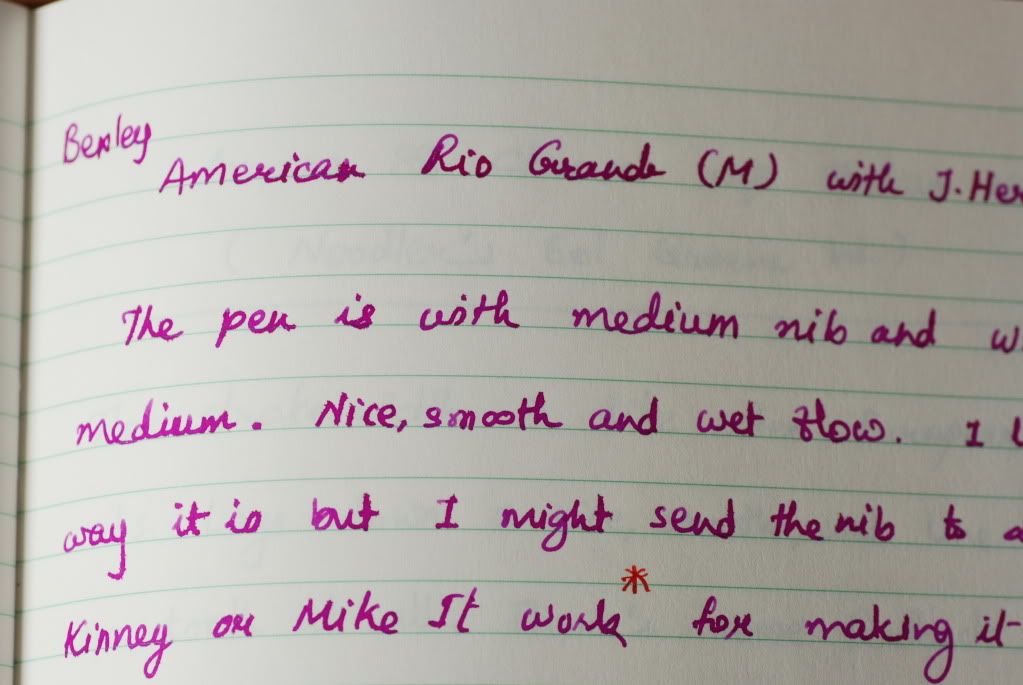 Bexley
American Rio Grande (M) with J. Her
The pen is with medium nib and w
medium. Nice, smooth and wet flow. I l
way it is but I might send the nib to a
Kinney or Mike It Work* for making it